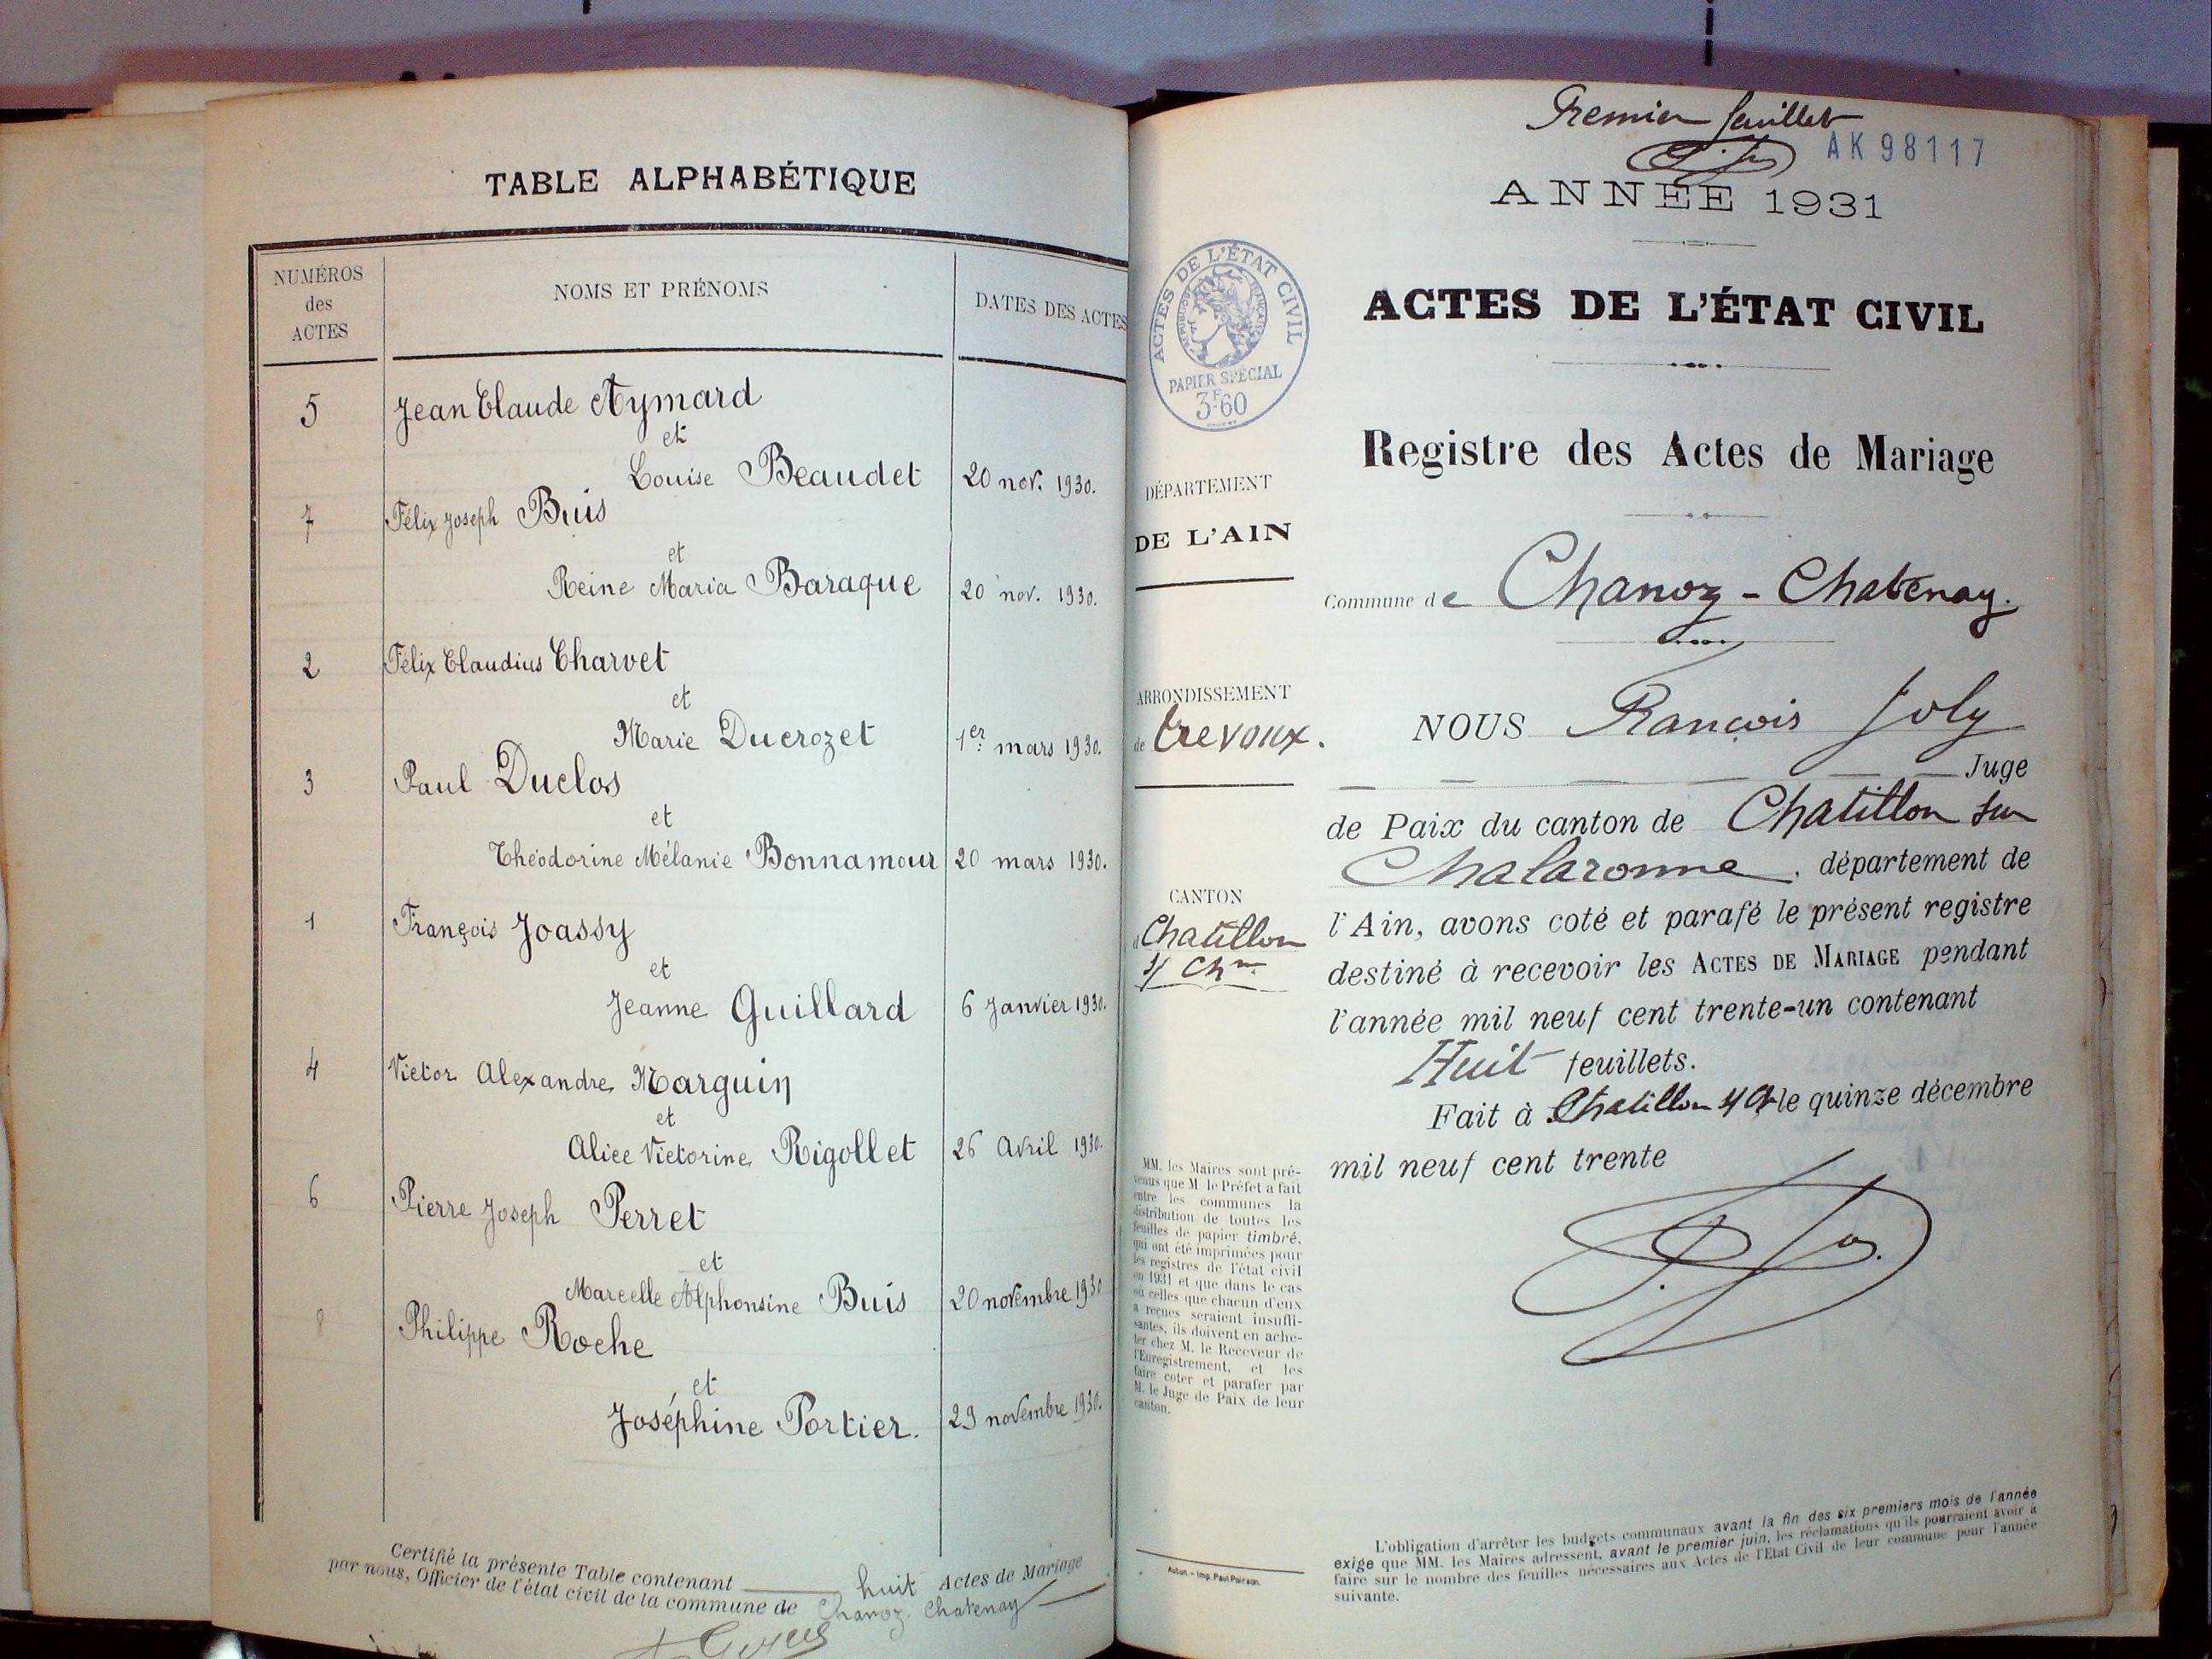 TABLE ALPHABÉTIQUE
NUMÉROS
des
ACTES
NOMS ET PRÉNOMS
DATES DES ACTES
5 Jean Claude Aymard
et
Louise Beaudet 20 nov. 1930.
7 Félix Joseph Buis
et
Reine Maria Baraque 20 nov. 1930.
2 Félix Claudius Charvet
et
Marie Ducrozet 1er mars 1930.
3 Paul Duclos
et
Théodorine Mélanie Bonnamour 20 mars 1930.
1 François Joassy
et
Jeanne Guillard 6 Janvier 1930.
4 Victor Alexandre Marguin
et
Alice Victorine Rigollet 26 Avril 1930.
6 Pierre Joseph Perret
et
Marcelle Alphonsine Buis 20 novembre 1930
8 Philippe Roche
et
Joséphine Portier. 29 novembre 1930.
Certifié la présente Table contenant huit Actes de Mariage
par nous, Officier de l'état civil de la commune de Chanoz-Chatenay
Premier feuillet
AK 98117
ANNÉE 1931
ACTES DE L'ÉTAT CIVIL
RÉPUBLIQUE FRANÇAISE
PAPIER SPÉCIAL
3F60
ACTES DE L'ÉTAT CIVIL
Registre des Actes de Mariage
DÉPARTEMENT
DE L'AIN
Commune de Chanoz-Chatenay.
ARRONDISSEMENT
de Trevoux.
CANTON
d Chatillon
s/ Chne
NOUS François Joly
Juge
de Paix du canton de Chatillon sur
Chalaronne, département de
l'Ain, avons coté et parafé le présent registre
destiné à recevoir les ACTES DE MARIAGE pendant
l'année mil neuf cent trente-un contenant
Huit feuillets.
Fait à Chatillon s/ Ch le quinze décembre
mil neuf cent trente
MM. les Maires sont pré-
venus que M. le Préfet a fait
entre les communes la
distribution de toutes les
feuilles de papier timbré,
qui ont été imprimées pour
les registres de l'état civil
en 1931 et que dans le cas
où celles que chacun d'eux
a reçues seraient insuffi-
santes, ils doivent en ache-
ter chez M. le Receveur de
l'Enregistrement, et les
faire coter et parafer par
M. le Juge de Paix de leur
canton.
Autun. - Imp. Paul Poirson.
L'obligation d'arrêter les budgets communaux avant la fin des six premiers mois de l'année
exige que MM. les Maires adressent, avant le premier juin, les réclamations qu'ils pourraient avoir à
faire sur le nombre des feuilles nécessaires aux Actes de l'Etat Civil de leur commune pour l'année
suivante.